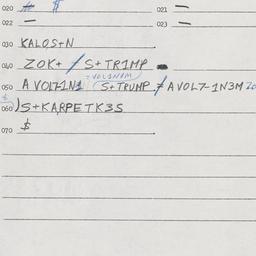 020 $ 021 —
022 — 023 —
030 KALOS+N
040 ZOK+ / S+TR1MP
+VOL1N1M
050 A VOL7-1N1 (S+TRUMP ≠ A VOL7-1N3M
060 )S+KARPETK3S
070 $